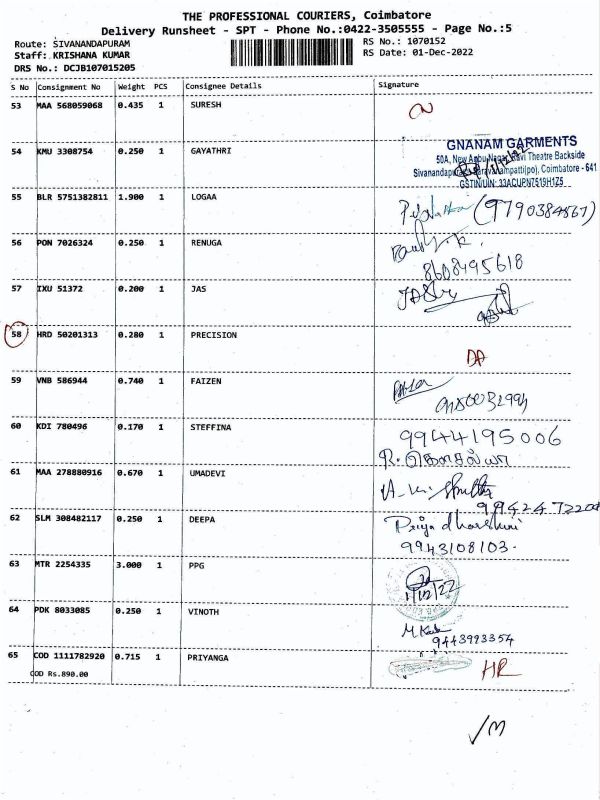 THE PROFESSIONAL COURIERS, Coimbatore
Delivery Runsheet - SPT - Phone No.:0422-3505555 - Page No.:5
Route: SIVANANDAPURAM
RS No.: 1070152
Staff: KRISHANA KUMAR
RS Date: 01-Dec-2022
DRS No.: DCJB107015205
S No Consignment No Weight PCS Consignee Details Signature
53 MAA 568059068 0.435 1 SURESH
54 KMU 3308754 0.250 1 GAYATHRI
GNANAM GARMENTS
50A, New Anbu Nagar, Ravi Theatre Backside
Coimbatore - 641
GSTIN/UIN: 33ACUPN7519H1Z5
55 BLR 5751382811 1.900 1 LOGAA
(9790384567)
56 PON 7026324 0.250 1 RENUGA
8608495618
57 IXU 51372 0.200 1 JAS
58 HRD 50201313 0.280 1 PRECISION
DA
59 VNB 586944 0.740 1 FAIZEN
60 KDI 780496 0.170 1 STEFFINA
9944195006
R. கௌசல்யா
61 MAA 278880916 0.670 1 UMADEVI
62 SLM 308482117 0.250 1 DEEPA
Priya dharshini
9943108103.
63 MTR 2254335 3.000 1 PPG
1/12/22
64 PDK 8033085 0.250 1 VINOTH
9443993354
65 COD 1111782920 0.715 1 PRIYANGA
HR
COD Rs.890.00